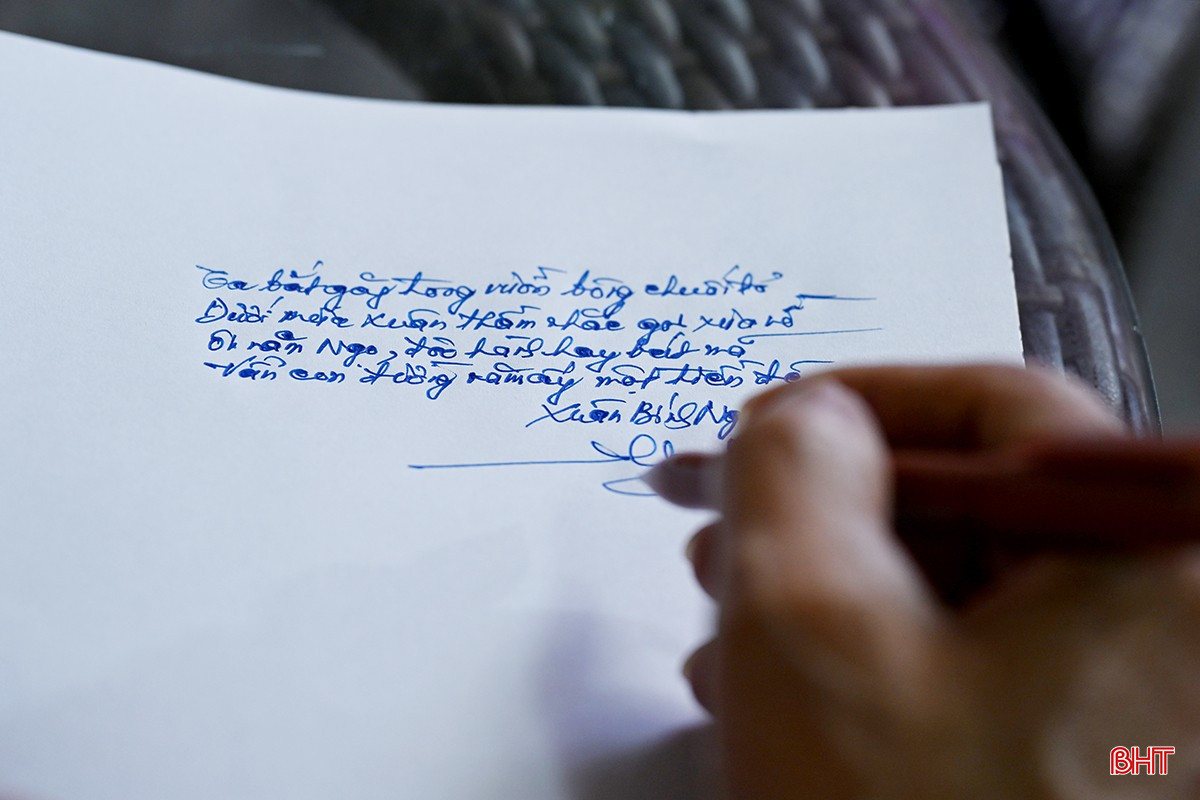 Ta bắt gặp trong vườn bông chuối đỏ
Dưới mưa xuân thầm nhắc gọi xưa về
Ôi năm Ngọ, đức hạnh hay bết mã
Vẫn con đường năm ấy một triền đê
Xuân Bính Ng
BHT